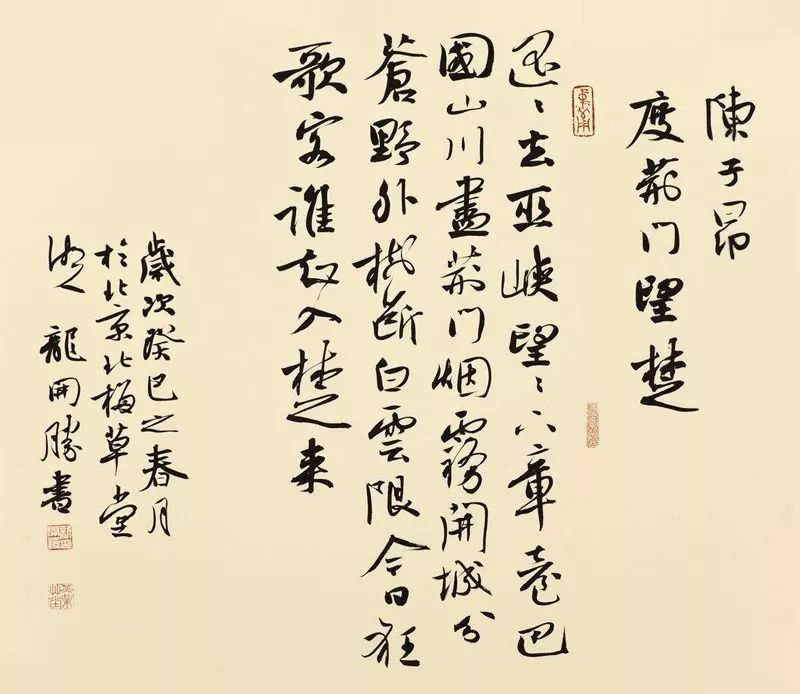 陳子昂
度荊門望楚
遥〻去巫峽望〻下章臺巴
國山川盡荊門烟霧開城分
蒼野外樹断白雲隈今日狂
歌客誰知入楚来
歲次癸巳之春月
於北京北梅草堂
龍開勝書